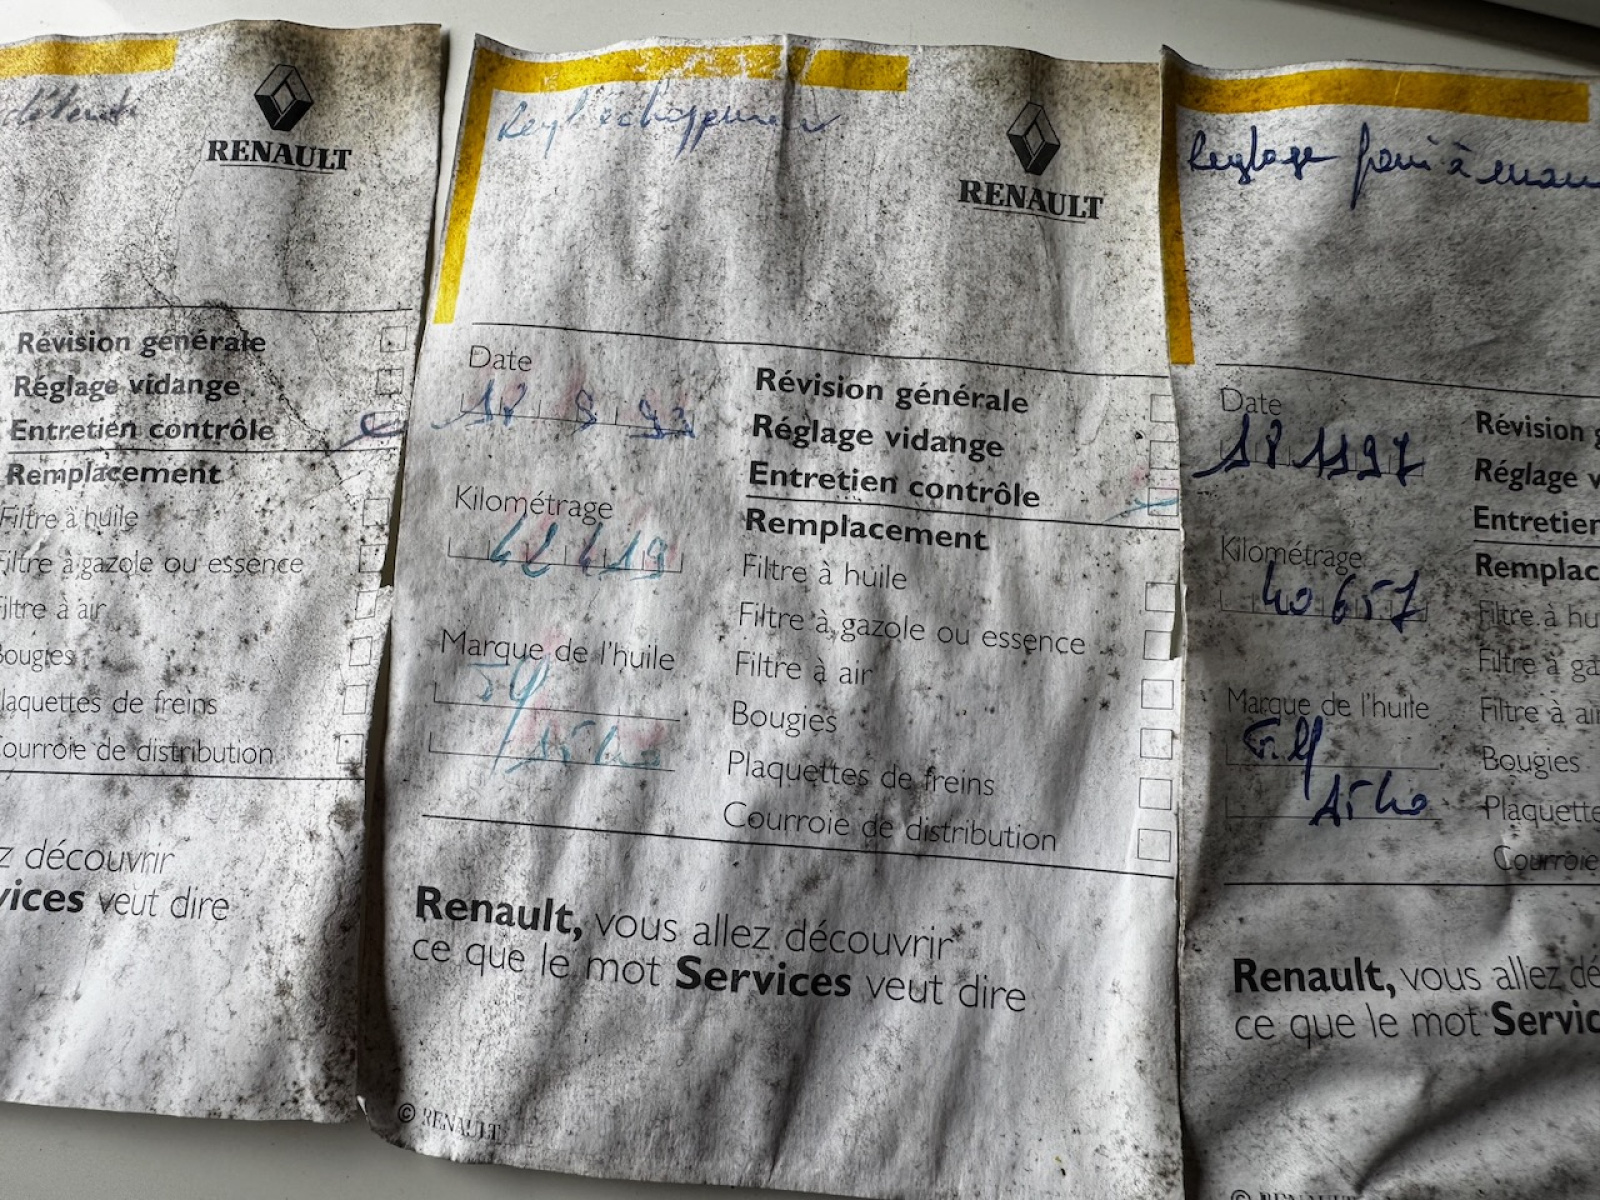 RENAULT
Révision générale
Réglage vidange
Entretien contrôle
Remplacement
Filtre à huile
Filtre à gazole ou essence
Filtre à air
Bougies
Plaquettes de freins
Courroie de distribution
z découvrir
vices veut dire
RENAULT
Date
Kilométrage
42419
Marque de l'huile
Révision générale
Réglage vidange
Entretien contrôle
Remplacement
Filtre à huile
Filtre à gazole ou essence
Filtre à air
Bougies
Plaquettes de freins
Courroie de distribution
Renault, vous allez découvrir
ce que le mot Services veut dire
© RENAULT
Reglage
à main
Date
Kilométrage
40657
Marque de l'huile
Elf
15 40
Révision g
Réglage v
Entretien
Remplac
Filtre à hu
Filtre à ga
Filtre à air
Bougies
Plaquette
Courroie
Renault, vous allez dé
ce que le mot Servic
© RENAULT